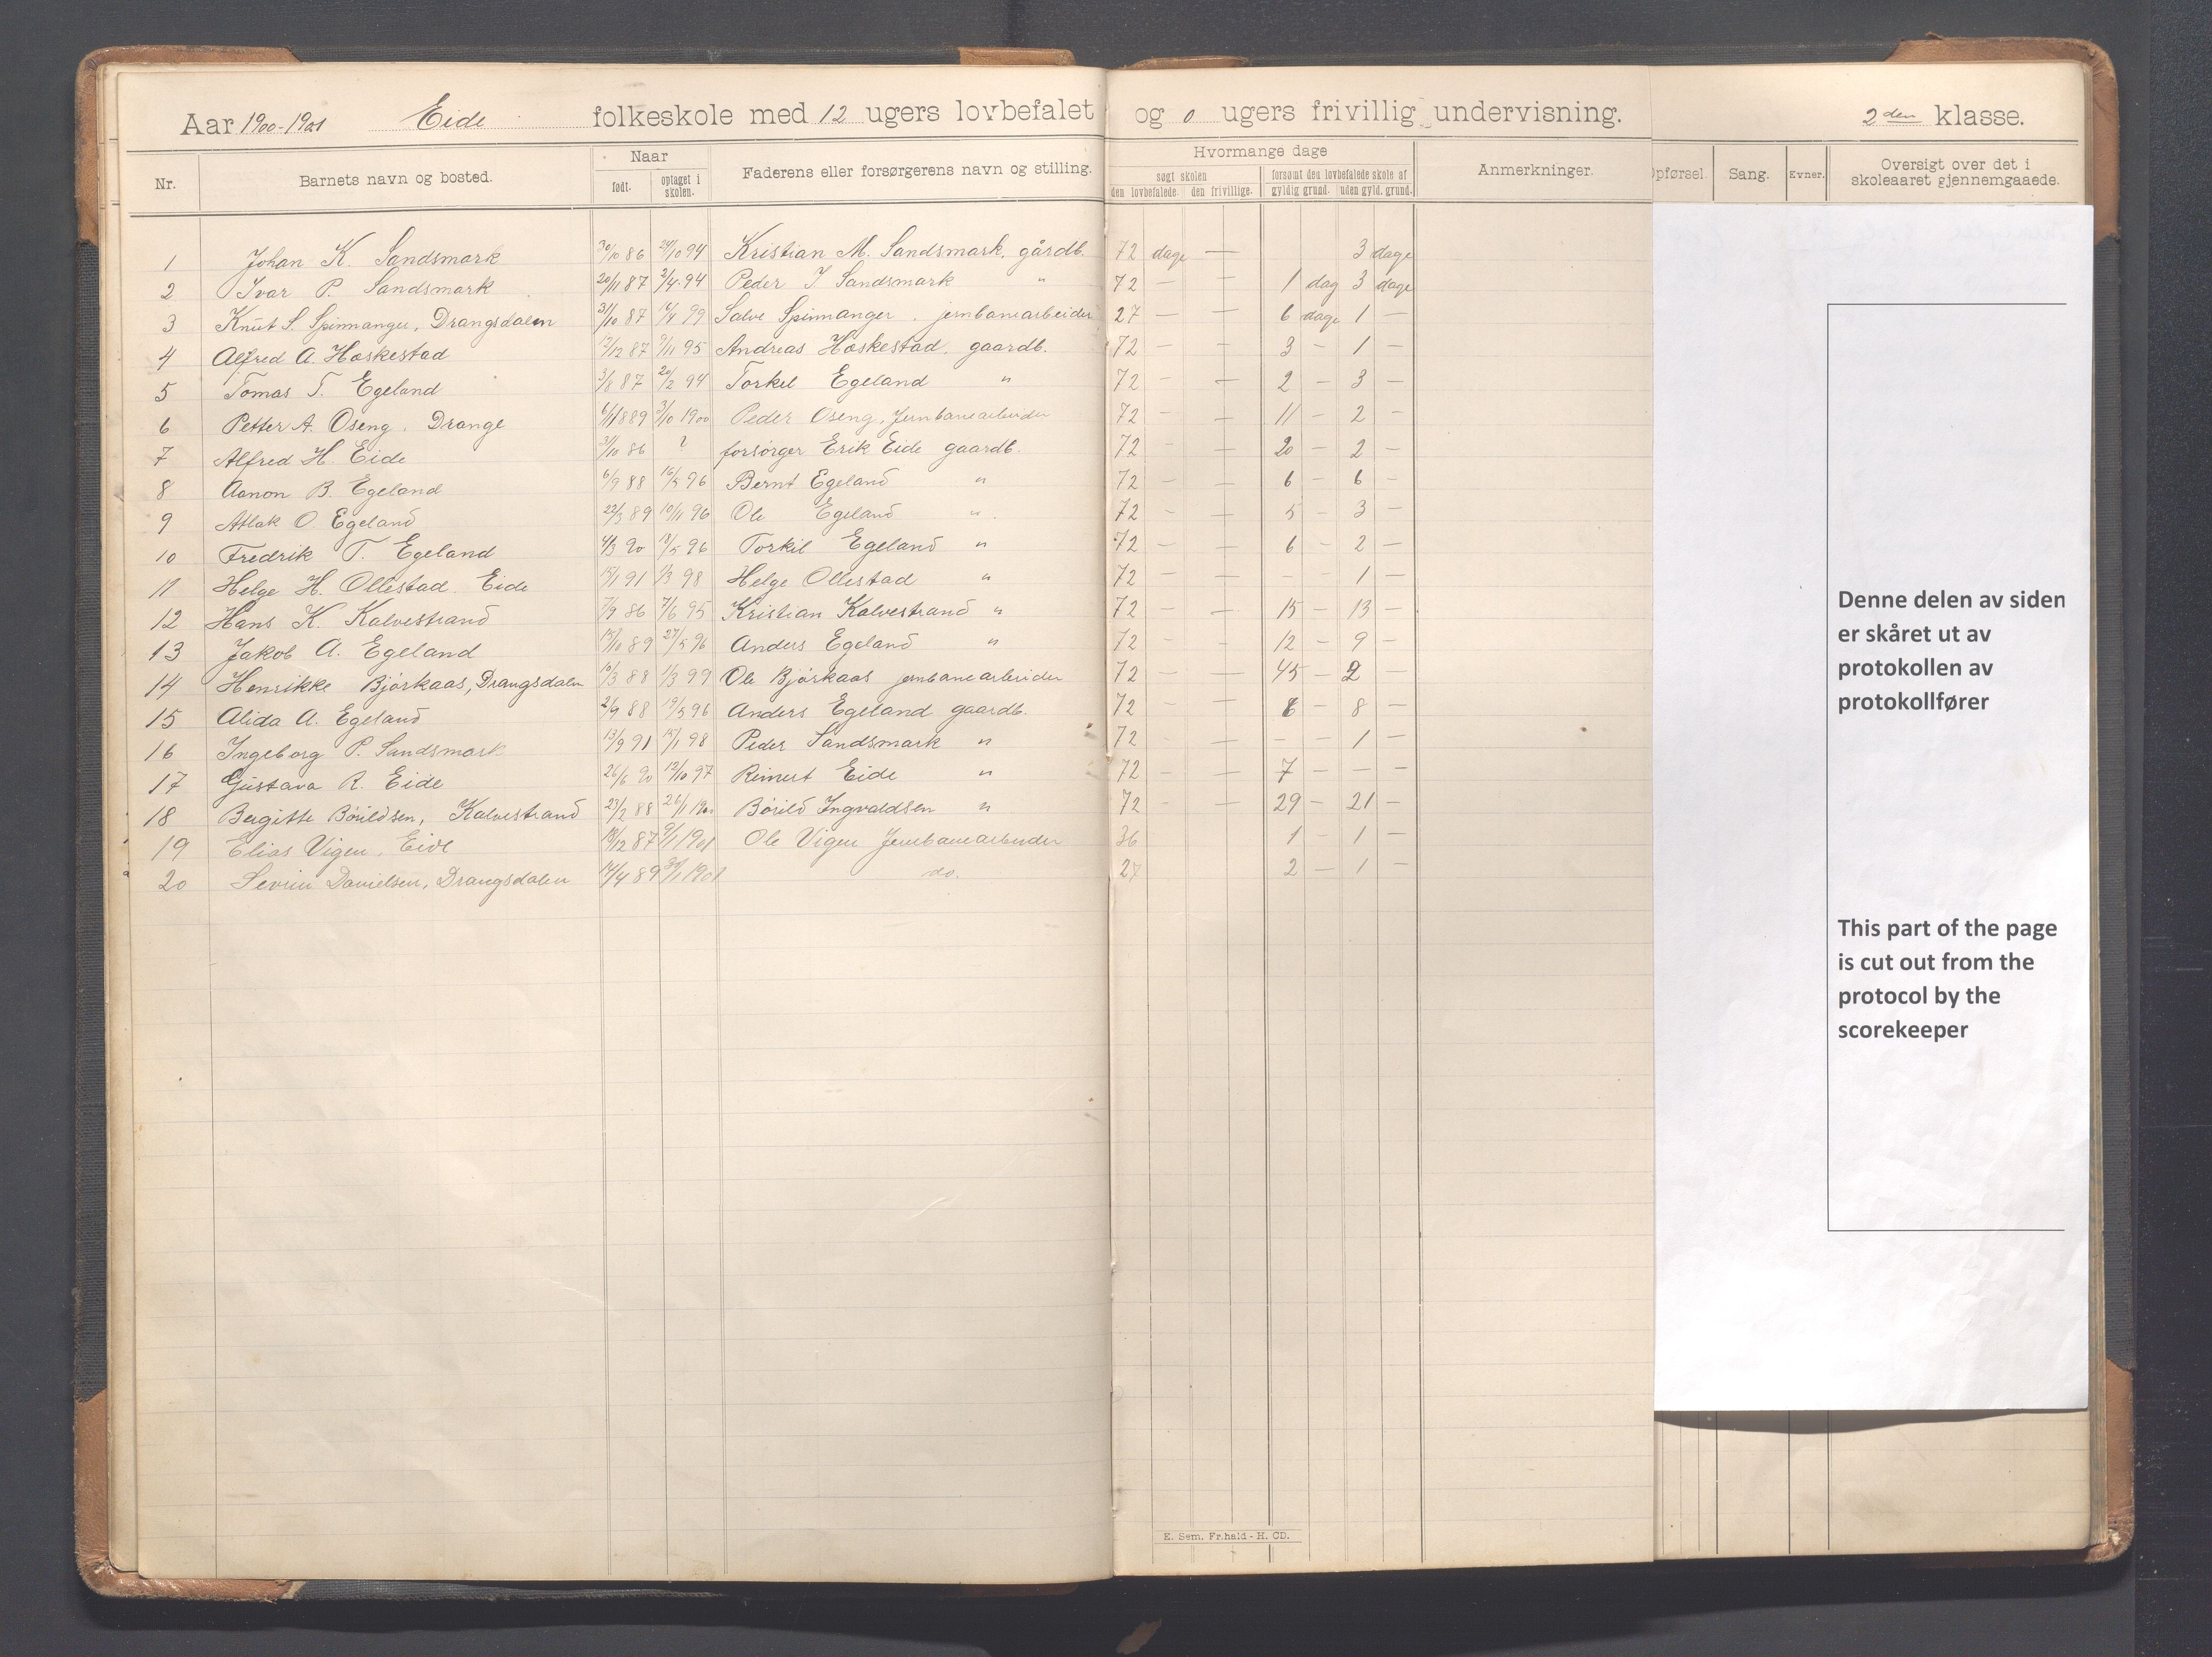 Aar 1900-1901 Eide folkeskole med 12 ugers lovbefalet og 0 ugers frivillig undervisning. 2den klasse.
Nr. Barnets navn og bosted. Naar født. optaget i skolen. Faderens eller forsørgerens navn og stilling. Hvormange dage søgt skolen den lovbefalede. den frivillige. forsømt den lovbefalede skole af gyldig grund. uden gyld. grund. Anmerkninger. Opførsel. Sang. Evner. Oversigt over det i skoleaaret gjennemgaaede.
1 Johan K. Sandsmark 30/10 86 24/10 94 Kristian M. Sandsmark, gårdb. 72 dage — 3 dage
2 Ivar P. Sandsmark 20/11 87 2/4 94 Peder I Sandsmark " 72 — — 1 dag 3 dage
3 Knut S. Spinnanger, Drangsdalen 31/10 87 99 Salve Spinnanger. jernbanearbeider 27 — — 6 dage 1 —
4 Alfred A. Høskestad 12/12 87 9/11 95 Andreas Høskestad. gaardb. 72 — — 3 — 1 —
5 Tomas T. Egeland 3/8 87 20/2 94 Torkel Egeland " 72 — — 2 — 3 —
6 Petter A. Oseng. Drange 6/1 1889 3/10 1900 Peder Oseng, Jernbanearbeider 72 — — 11 — 2 —
7 Alfred H. Eide 31/10 86 ? forsørger Erik Eide gaardb. 72 — 20 — 2 —
8 Aanon B. Egeland 6/9 88 16/5 96 Bernt Egeland " 72 — — 6 — 6 —
9 Atlak O. Egeland 22/3 89 10/11 96 Ole Egeland " 72 — — 5 — 3 —
10 Fredrik T. Egeland 4/3 90 18/5 96 Torkil Egeland " 72 — — 6 — 2 —
11 Helge H. Ollestad. Eide 15/1 91 1/3 98 Helge Ollestad " 72 — — — — 1 —
12 Hans K. Kalvestrand 7/9 86 7/6 95 Kristian Kalvestrand " 72 — — 15 — 13 —
13 Jakob A. Egeland 15/10 89 27/5 96 Anders Egeland " 72 — — 12 — 9 —
14 Henrikke Bjørkaas, Drangsdalen 10/3 88 1/3 99 Ole Bjørkaas jernbanearbeider 72 — — 45 — 2 —
15 Alida A. Egeland 2/9 88 19/5 96 Anders Egeland gaardb. 72 — — — 8 —
16 Ingeborg P. Sandsmark 13/9 91 15/1 98 Peder Sandsmark " 72 — — — — 1 —
17 Gustava R. Eide 26/6 90 12/10 97 Reinert Eide " 72 — — 7 — — —
18 Bergitte Børildsen, Kalvestrand 23/2 88 26/1 1900 Børild Ingvaldsen " 72 — — 29 — 21 —
19 Elias Vigen, Eide 19/12 87 9/1 1901 Ole Vigen Jernbanearbeider 36 1 — 1 —
20 Sevrin Danielsen, Drangsdalen 14/4 89 30/1 1901 do. 27 2 — 1 —
Denne delen av siden
er skåret ut av
protokollen av
protokollfører
This part of the page
is cut out from the
protocol by the
scorekeeper
E. Sem. Fr.hald - H. CD.